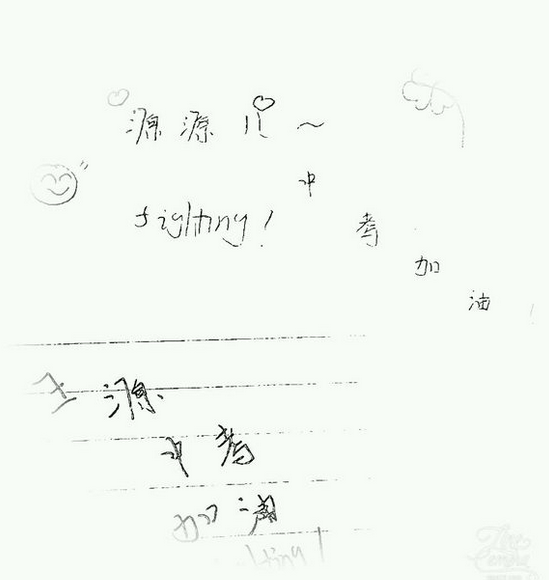 源源儿~
fighting!
中考加油!
王源
中考
加油
hting!